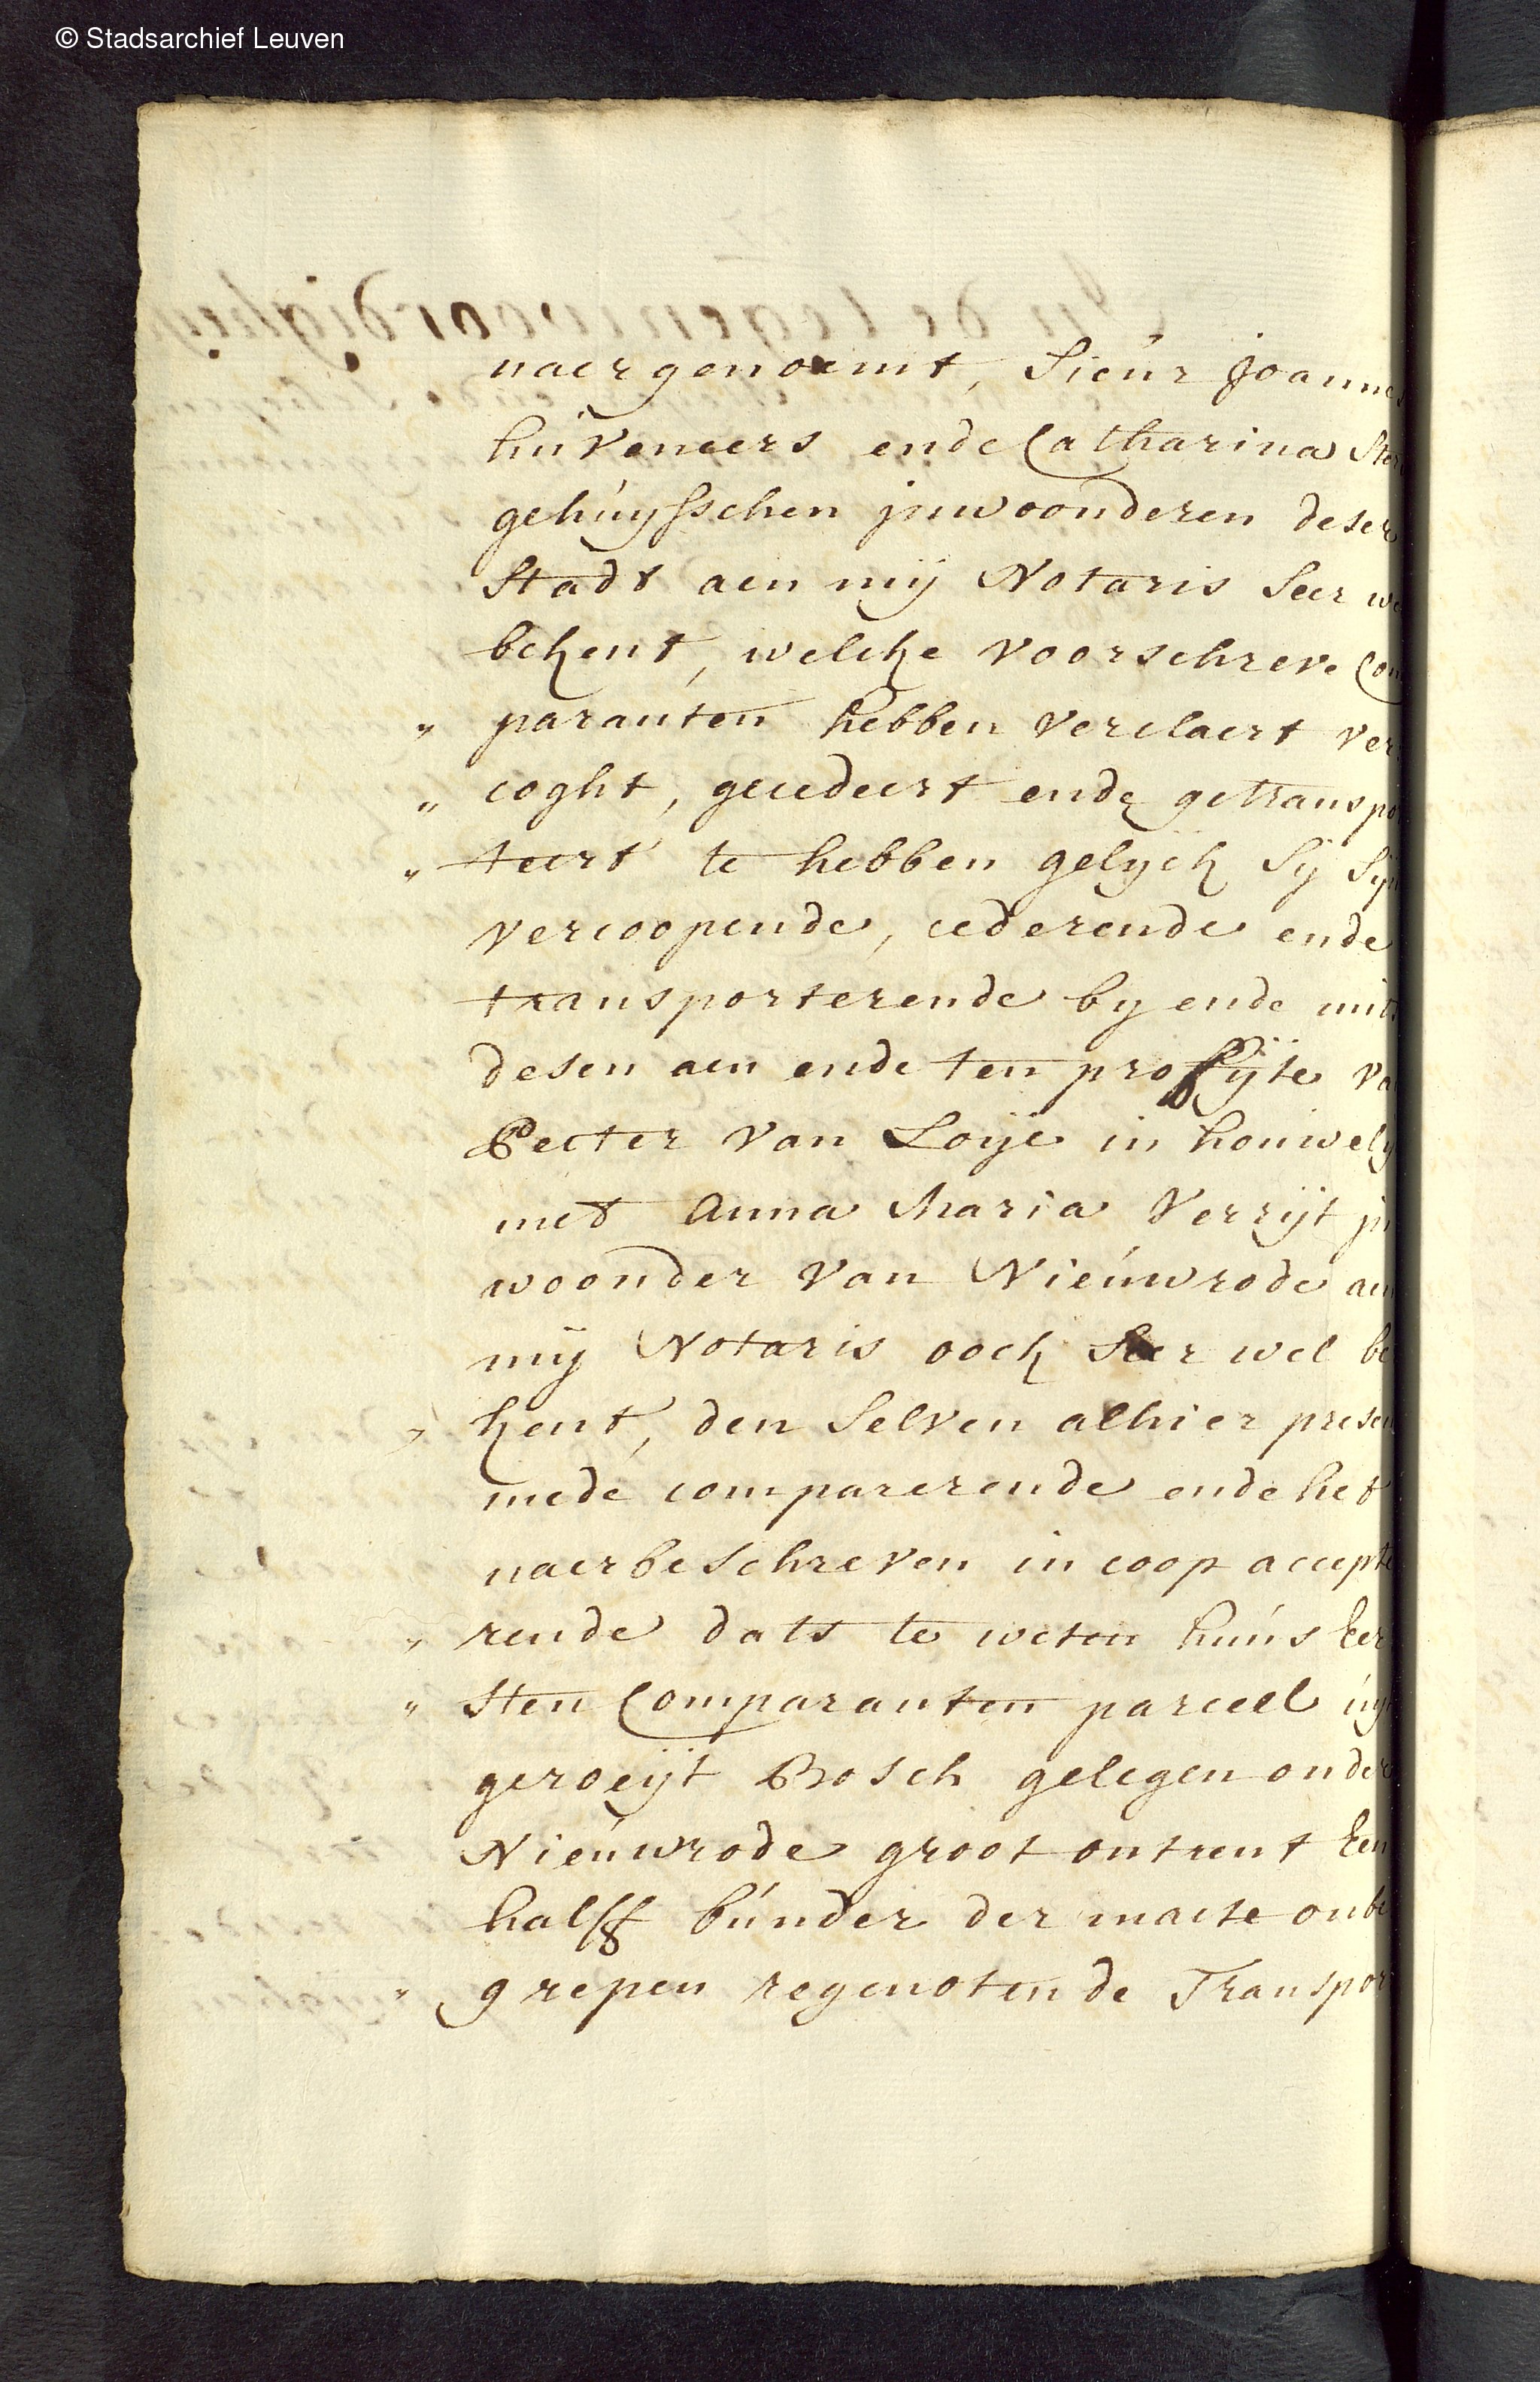 © Stadsarchief Leuven
naergenoemt, Sieur Joannes
huveneers ende Catharina
gehuysschen jnwoonderen deser
Stadt aen mij Notaris Seer we
bekent, welcke voorschreve Com
" paranten hebben verclaert ver
" coght, gecedeert ende getranspor
" teert te hebben gelyck Sij Sijn
vercoopende, cederende ende
transporterende by ende mits
desen aen ende ten proffyte va
Peeter van Loije in houwely
met Anna Maria Verrijt jn
woonder van Nieuwrode aen
mij Notaris oock Seer wel be
" kent, den Selven alhier presen
mede comparerende ende het
naerbeschreven in coop accepte
" rende dats te weten huns Eer
" Sten Comparanten parceel
geroeijt Bosch gelegen onder
Nieuwrode groot ontrent Een
halff bunder der maete onbe
" grepen regenoten de Transpor